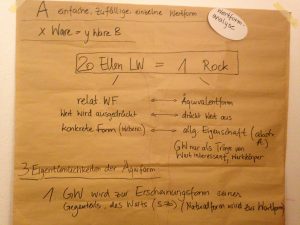 A einfache, zufällige einzelne Wertform
Wertform
analyse
x Ware = y Ware B
20 Ellen LW = 1 Rock
relat WF ↔ Äquivalentform
Wert wird ausgedrückt ↔ drückt Wert aus
konkrete Form ↔ allg. Eigenschaft
GW nur als Träger von
Wert interessant, Wertkörper
3 Eigentümlichkeiten der Äquiform
1 GW wird zur Erscheinungsform seines
Gegenteils, des Werts (Naturalform wird zur Wertform)